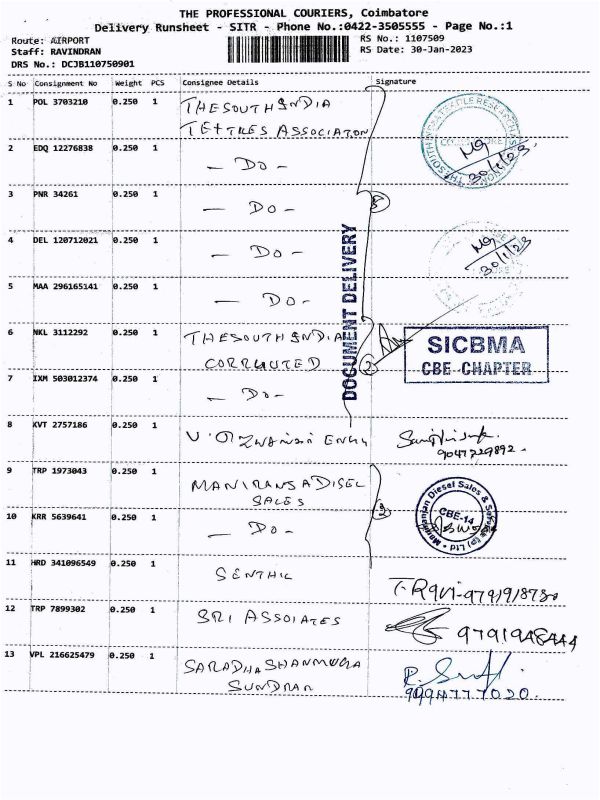 THE PROFESSIONAL COURIERS, Coimbatore
Delivery Runsheet - SITR - Phone No.:0422-3505555 - Page No.:1
Route: AIRPORT
RS No.: 1107509
Staff: RAVINDRAN
RS Date: 30-Jan-2023
DRS No.: DCJB110750901
S No Consignment No Weight PCS Consignee Details Signature
1 POL 3703210 0.250 1 THESOUTH INDIA
TEXTILES ASSOCIATON
2 EDQ 12276838 0.250 1 - DO -
30/1/23
3 PNR 34261 0.250 1 - DO -
5
4 DEL 120712021 0.250 1 - DO -
30/1/23
5 MAA 296165141 0.250 1 - DO -
DOCUMENT DELIVERY
6 NKL 3112292 0.250 1 THESOUTH INDIA
CORRUUTED
2
SICBMA
CBE-CHAPTER
7 IXM 503012374 0.250 1 - DO -
8 KVT 2757186 0.250 1
9047729892.
9 TRP 1973043 0.250 1
SALES
10 KRR 5639641 0.250 1 - DO -
CBE-14
11 HRD 341096549 0.250 1 SENTHIL
T-Ravi-9791918730
12 TRP 7899302 0.250 1 SRI ASSOIATES
13 VPL 216625479 0.250 1 SARADHA SHANMUGA
SUNDRAM
9994777020.